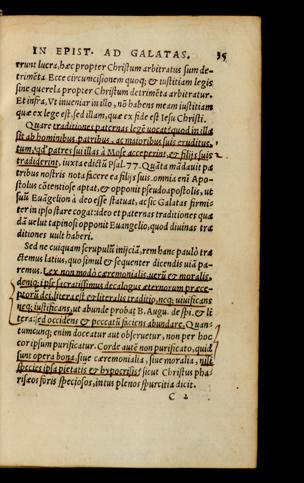 IN EPIST. AD GALATAS. 35
trunt lucra, hæc propter Christum arbitratus sum de-
trimēta. Ecce circuncisionem quoq; & iustitiam legis
sine querela propter Christum detrimēta arbitratur.
Et infra, Vt inueniar in illo, nō habens meam iustitiam
quæ ex lege est, sed illam, quæ ex fide est Iesu Christi.
Quare traditiones paternas legē vocat quod in illa
sit ab hominibus patribus, ac maioribus suis eruditus,
tum, qd' patres sui illas à Mose acceperint, & filijs suis
tradiderint, iuxta edictū Psal. 77. Quāta mādauit pa
tribus nostris nota facere ea filijs suis. omnia eni Apo-
stolus cōtentiose aptat, & opponit pseudoapostolis, ut
suū Euāgelion à deo esse statuat, ac sic Galatas firmi-
ter in ipso stare cogat: ideo et paternas traditiones quas
dā uelut tapinosi opponit Euangelio, quod diuinas tra
ditiones uult haberi.
Sed ne cuiquam scrupulū inijciā, rem hanc paulò tra
ctemus latius, quo simul & sequenter dicendis uiā pa-
remus. Lex non modò cæremonialis, uerū & moralis,
deniq; ipse sacratissimus decalogus æternorum præce-
ptorū dei, litera est & literalis traditio, necq; uiuificans
neq; iustificans, ut abunde probat B. Augu. de spi. & li
tera: sed occidens & peccatū faciens abundare. Quan-
tumcunq; enim doceatur aut obseruetur, non per hoc
cor ipsum purificatur. Corde autē non purificato, quid
sunt opera bona, siue cæremonialia, siue moralia, nisi
species ipsa pietatis & hypocrisis? sicut Christus pha
risæos foris speciosos, intus plenos spurcitia dicit.
C 2